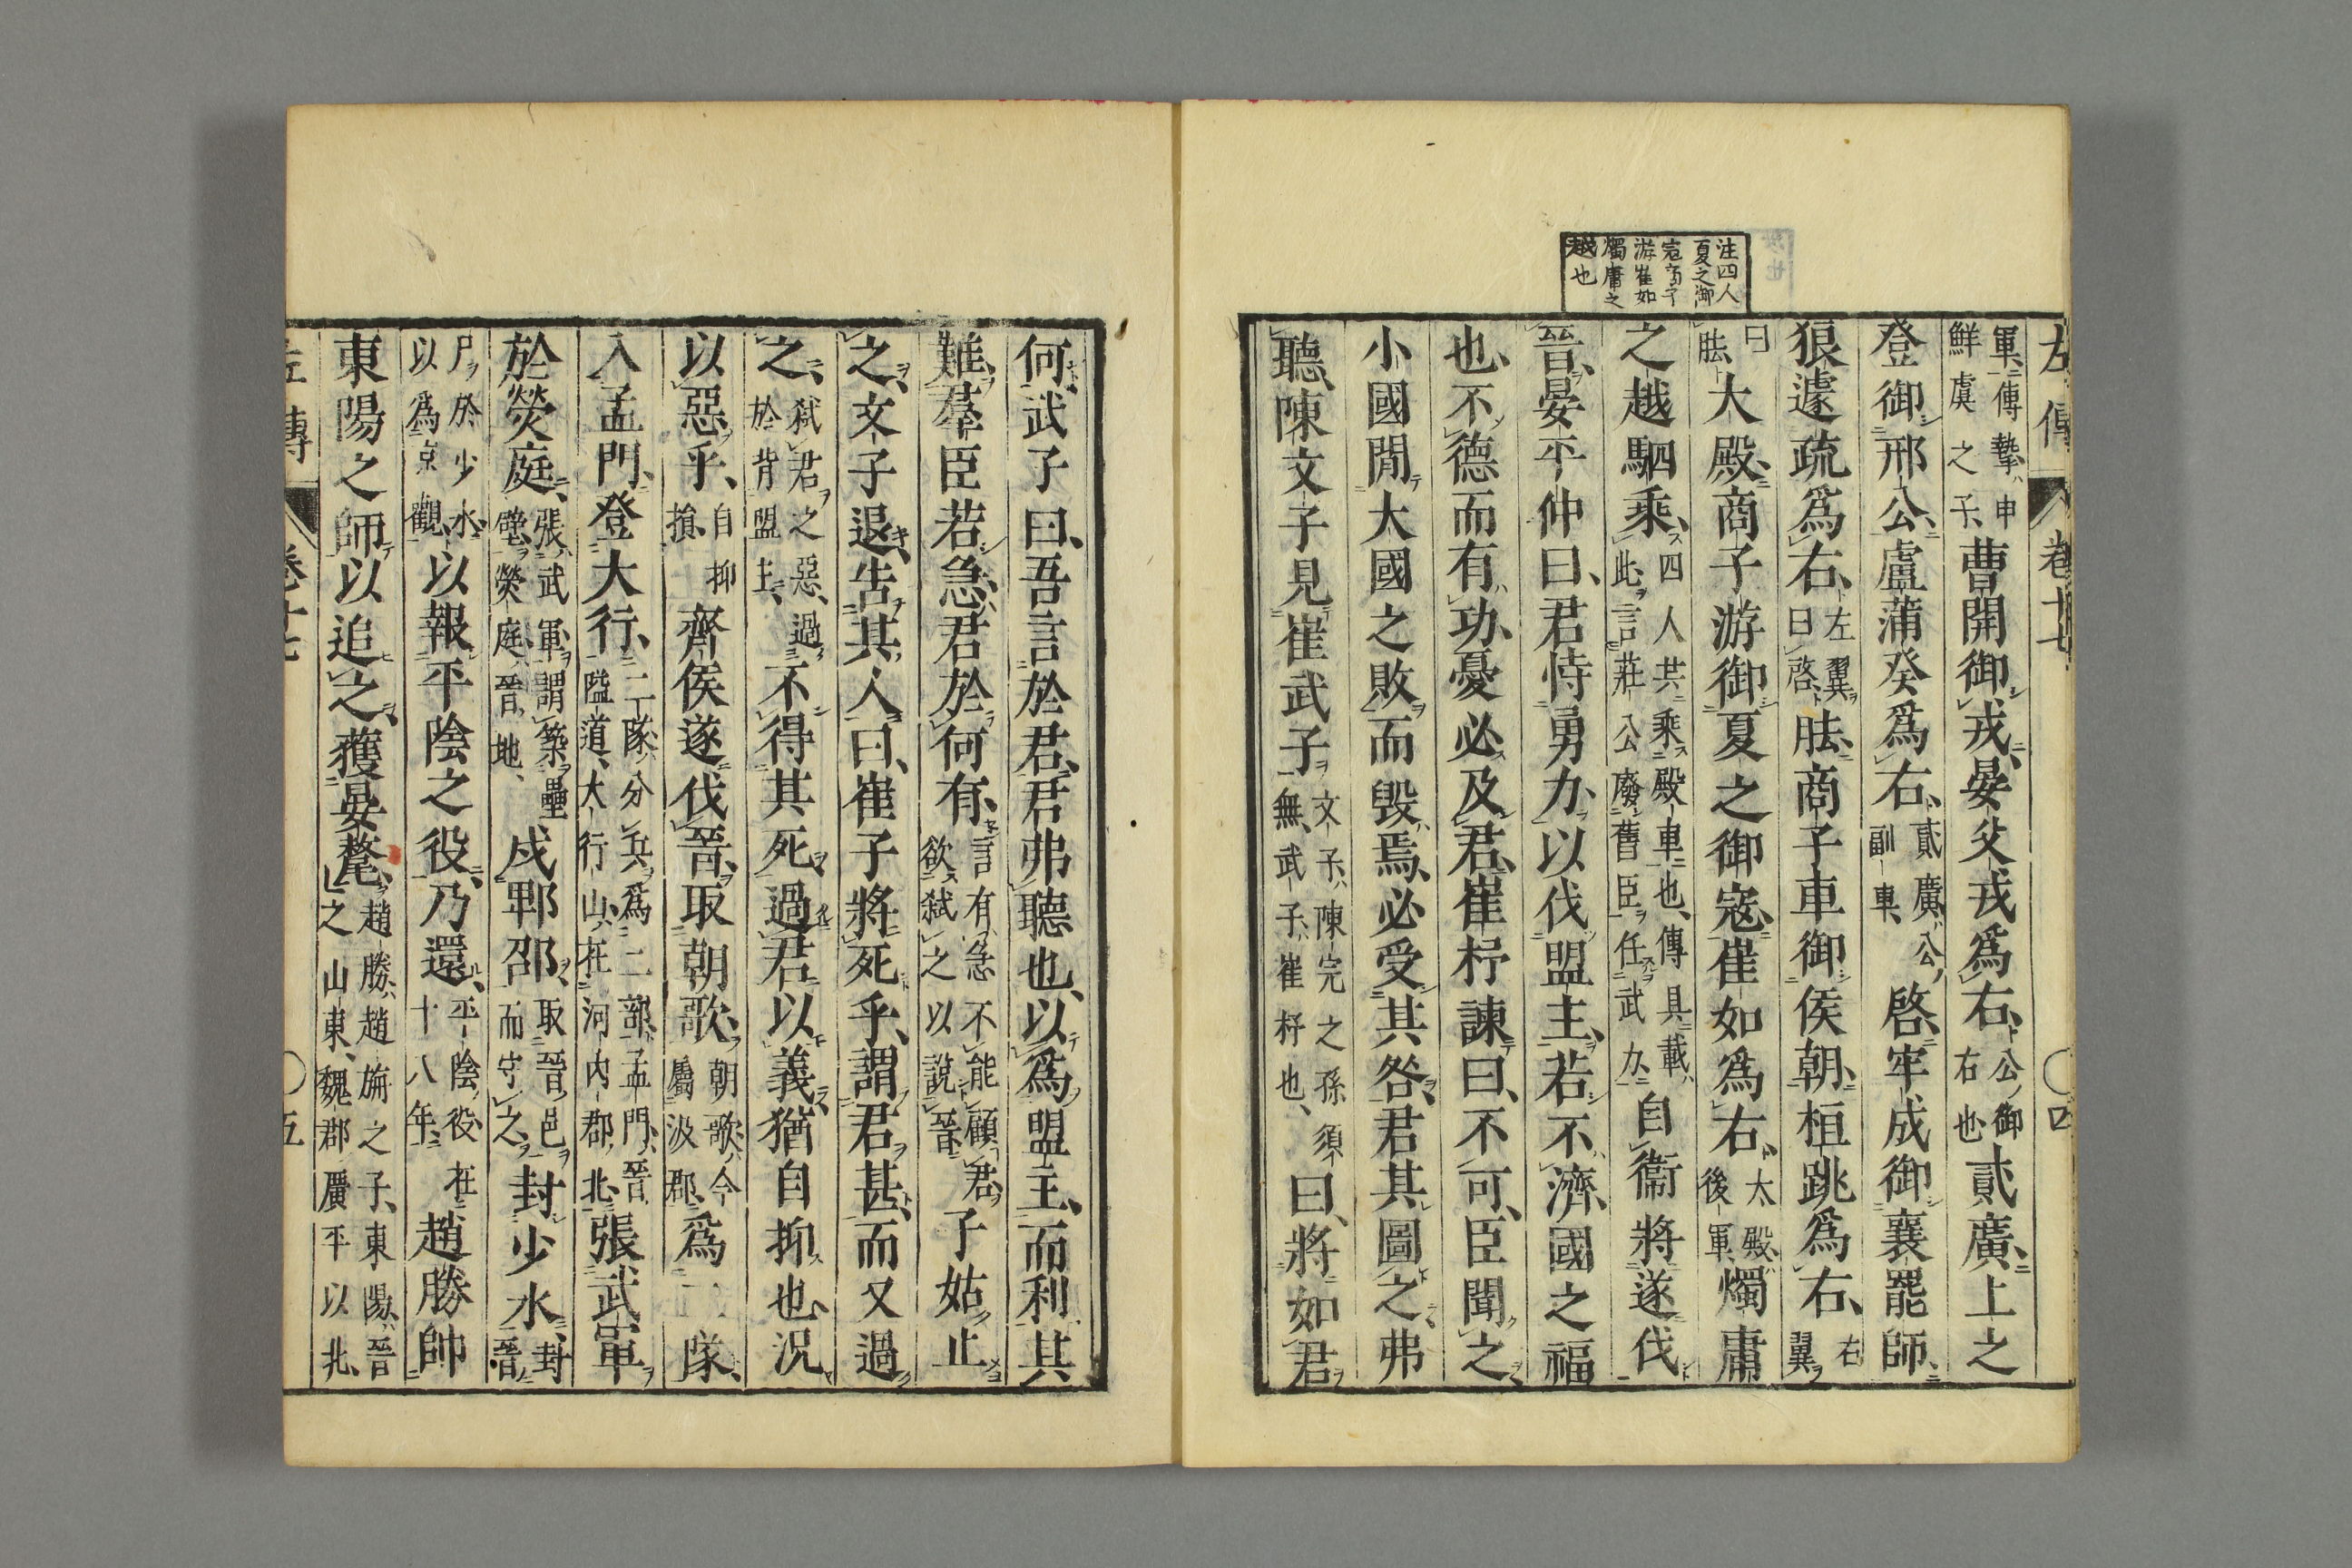 左傳 卷十七 〇四
軍、傳摯、申鮮虞之子、曹開御戎、晏父戎爲右、公御右也貳廣、上之
登御邢公、盧蒲癸爲右、貳廣、公副車、啓、牢成御襄罷師、
狼蘧疏爲右、左翼曰啓、胠、商子車御侯朝、桓跳爲右、右翼
曰胠、大殿、商子游御夏之御寇、崔如爲右、大殿、後軍、燭庸
之越駟乘、四人共乘殿車也、傳具載此、言莊公廢舊臣任武力、自衞將遂伐
晉、晏平仲曰、君恃勇力、以伐盟主、若不濟、國之福
也、不德而有功、憂必及君、崔杼諫曰、不可、臣聞之、
小國閒大國之敗、而毀焉、必受其咎、君其圖之、弗
聽、陳文子見崔武子、文子、陳完之孫須無、武子、崔杼也、曰、將如君
注四人
夏之御
寇商子
游崔如
燭庸之
越也
何、武子曰、吾言於君、君弗聽也、以爲盟主、而利其
難、羣臣若急、君於何有、言有急不能顧君、欲弑之以說晉、子姑止
之、文子退、告其人曰、崔子將死乎、謂君甚、而又過
之、弑君之惡、過於背盟主、不得其死、過君以義、猶自抑也、況
以惡乎、自抑損、齊侯遂伐晉、取朝歌、朝歌、今屬汲郡、爲二隊、
入孟門、登大行、二隊、分兵爲二部、孟門、晉隘道、大行山、在河內郡北、張武軍
於熒庭、張武軍、謂築壘壁、熒庭、晉地、戍郫邵、取晉邑而守之、封少水、封晉
尸於少水、以爲京觀、以報平陰之役、乃還、平陰役、在十八年、趙勝帥
東陽之師以追之、獲晏氂、趙勝、趙旃之子、東陽、晉之山東、魏郡廣平以北、
左傳 卷十七 〇五